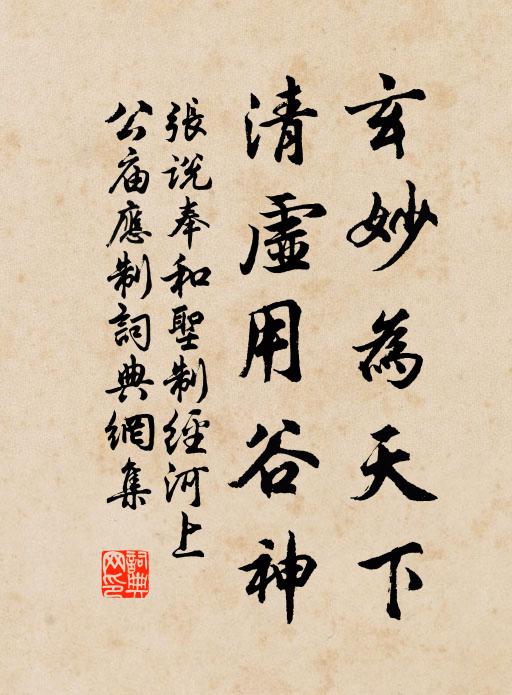 玄妙為天下
清虛用谷神
張說奉和聖制經河上
公庙應制詞典網集
詞典
网印